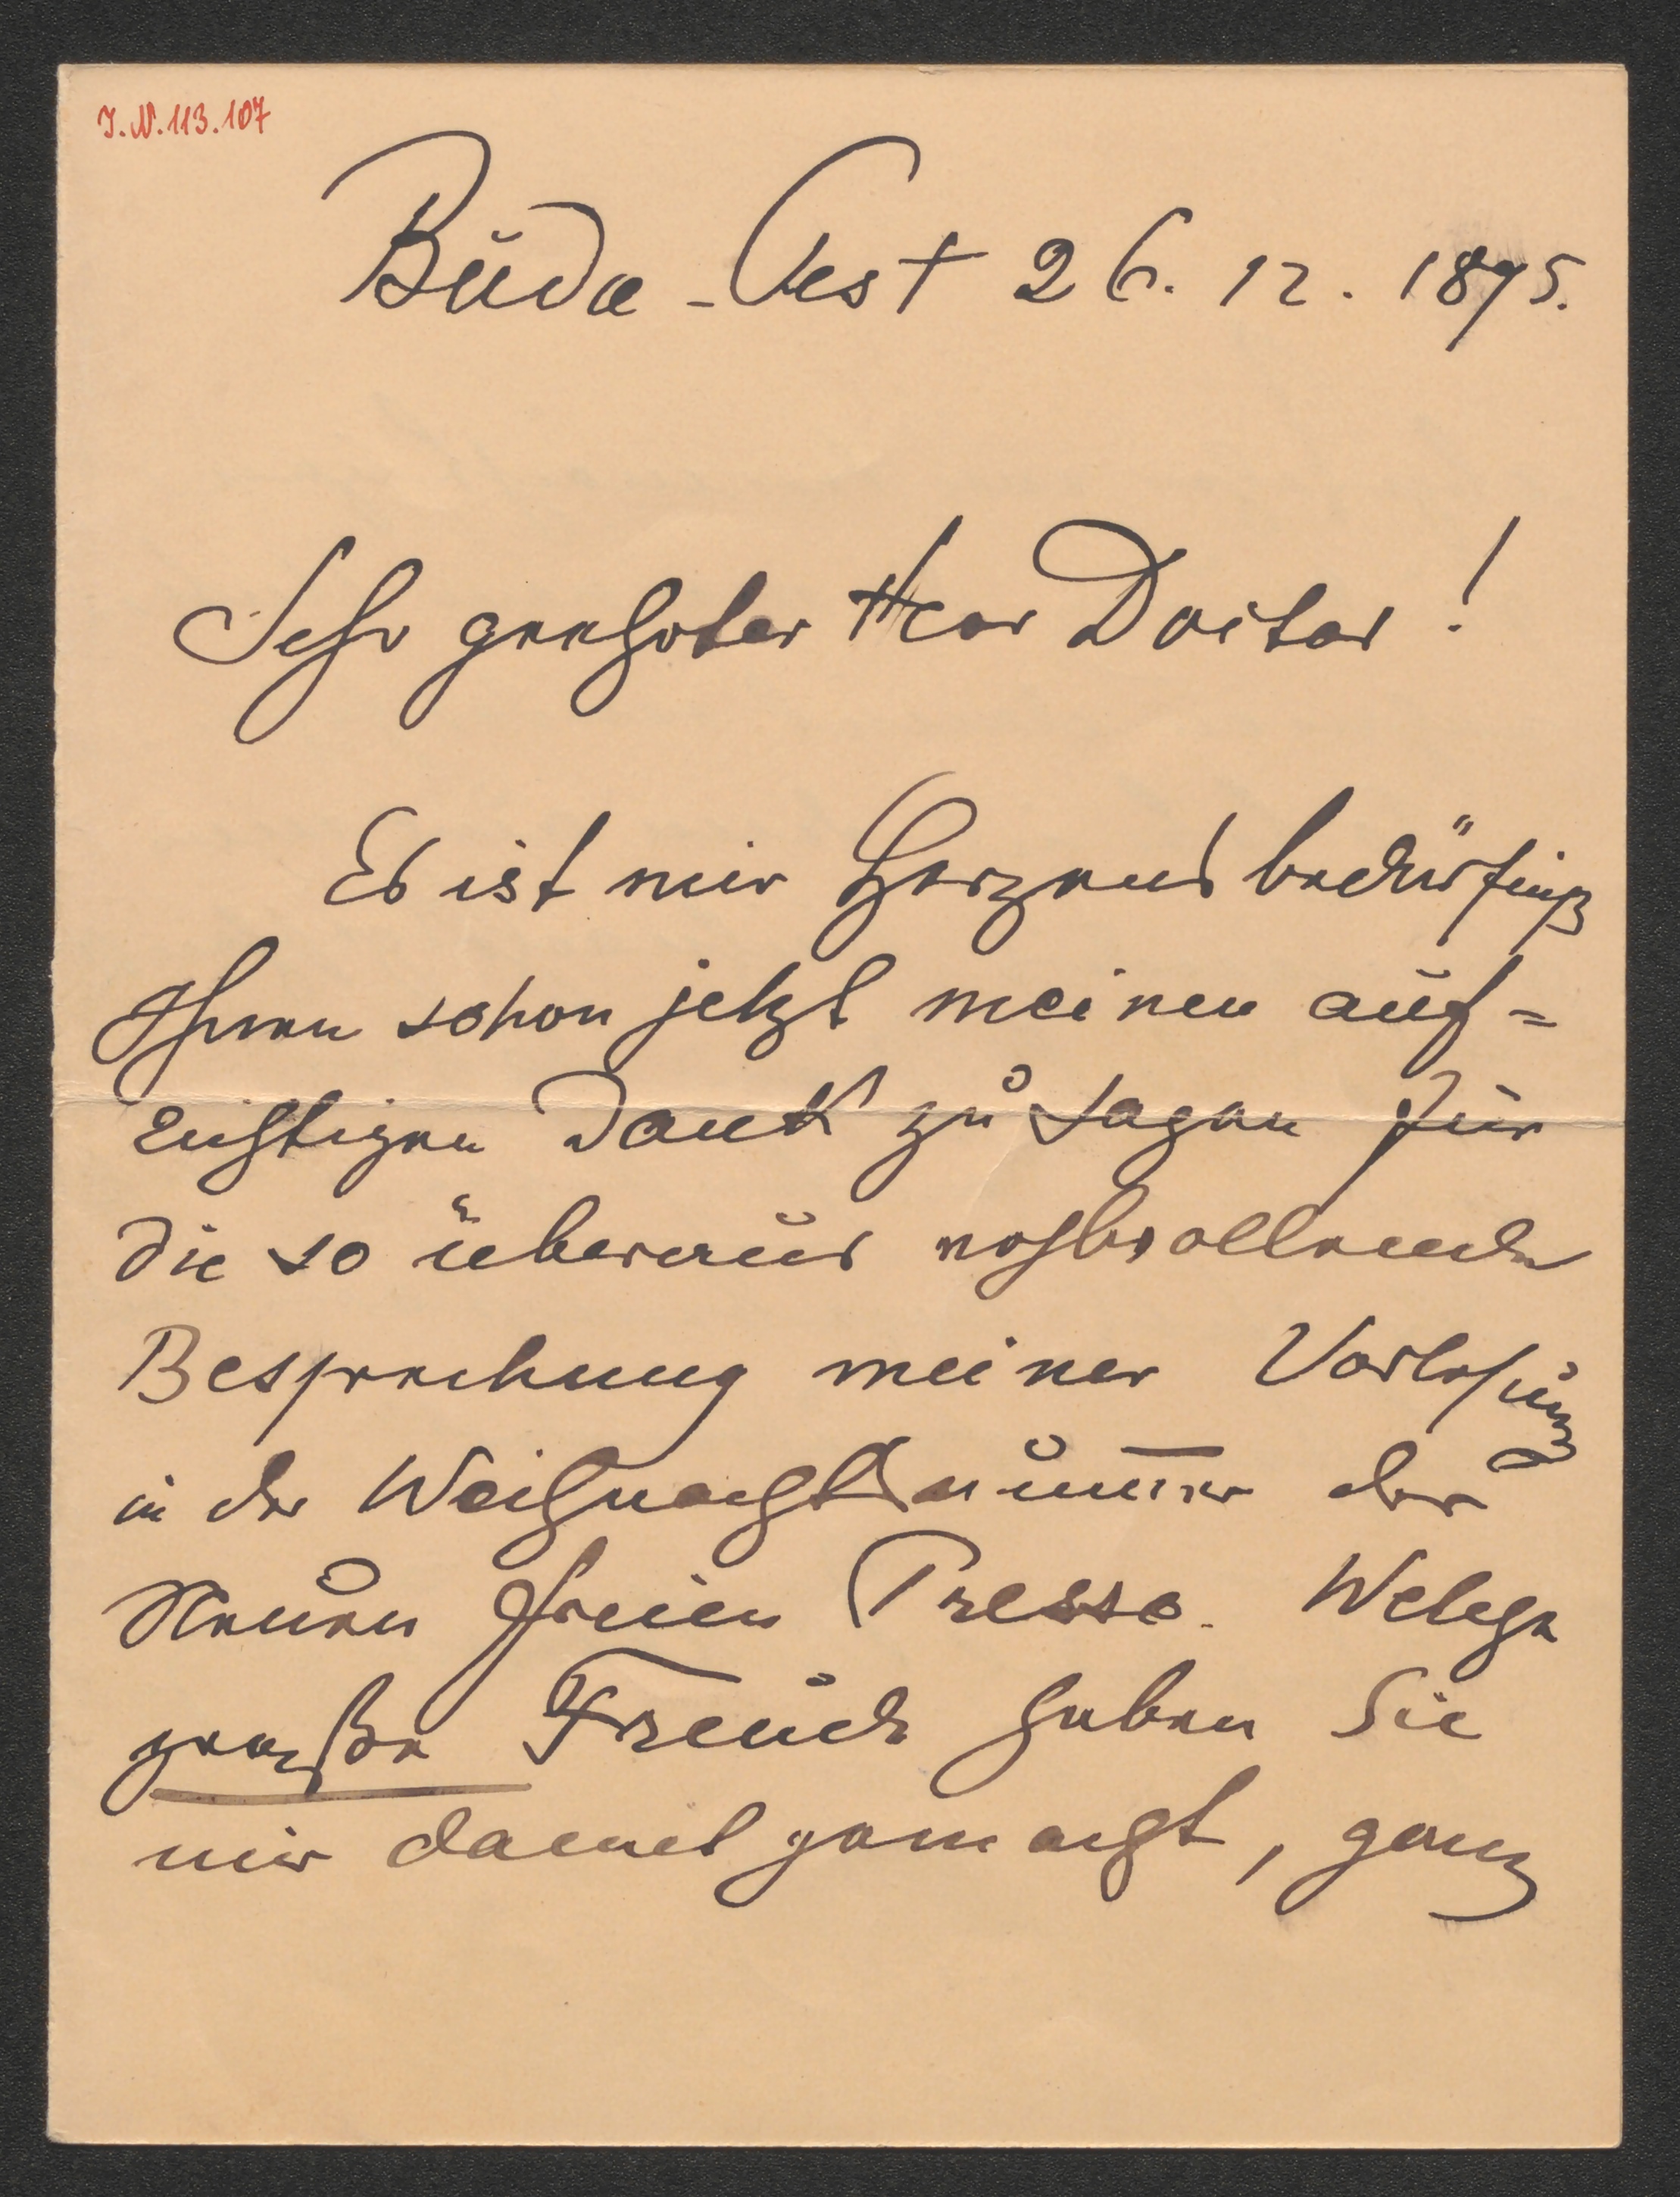 I.N. 113.107
Buda-Pest 26. 12. 1895.
Sehr geehrter Herr Doctor!
Es ist mir Herzensbedürfniß
Ihnen schon jetzt meinen auf=
richtigen Dank zu sagen für
die so überaus wohlwollende
Besprechung meiner Vorlesung
in der Weihnachtsnum̅er der
Neuen Freien Presse. Welche
große Freude haben Sie
mir damit gemacht, ganz